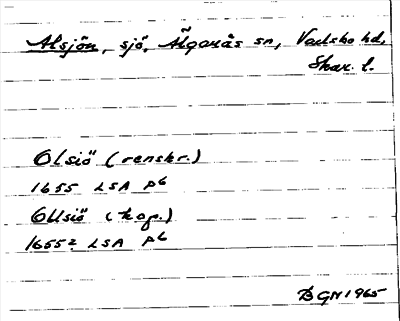 Alsjön, sjö, Älgarås sn, Vadsbo hd,
Skar. l.
Olsiö (renskr.)
1655 LSA p6
Ollsiö (kop.)
1655? LSA p6
BGN 1965